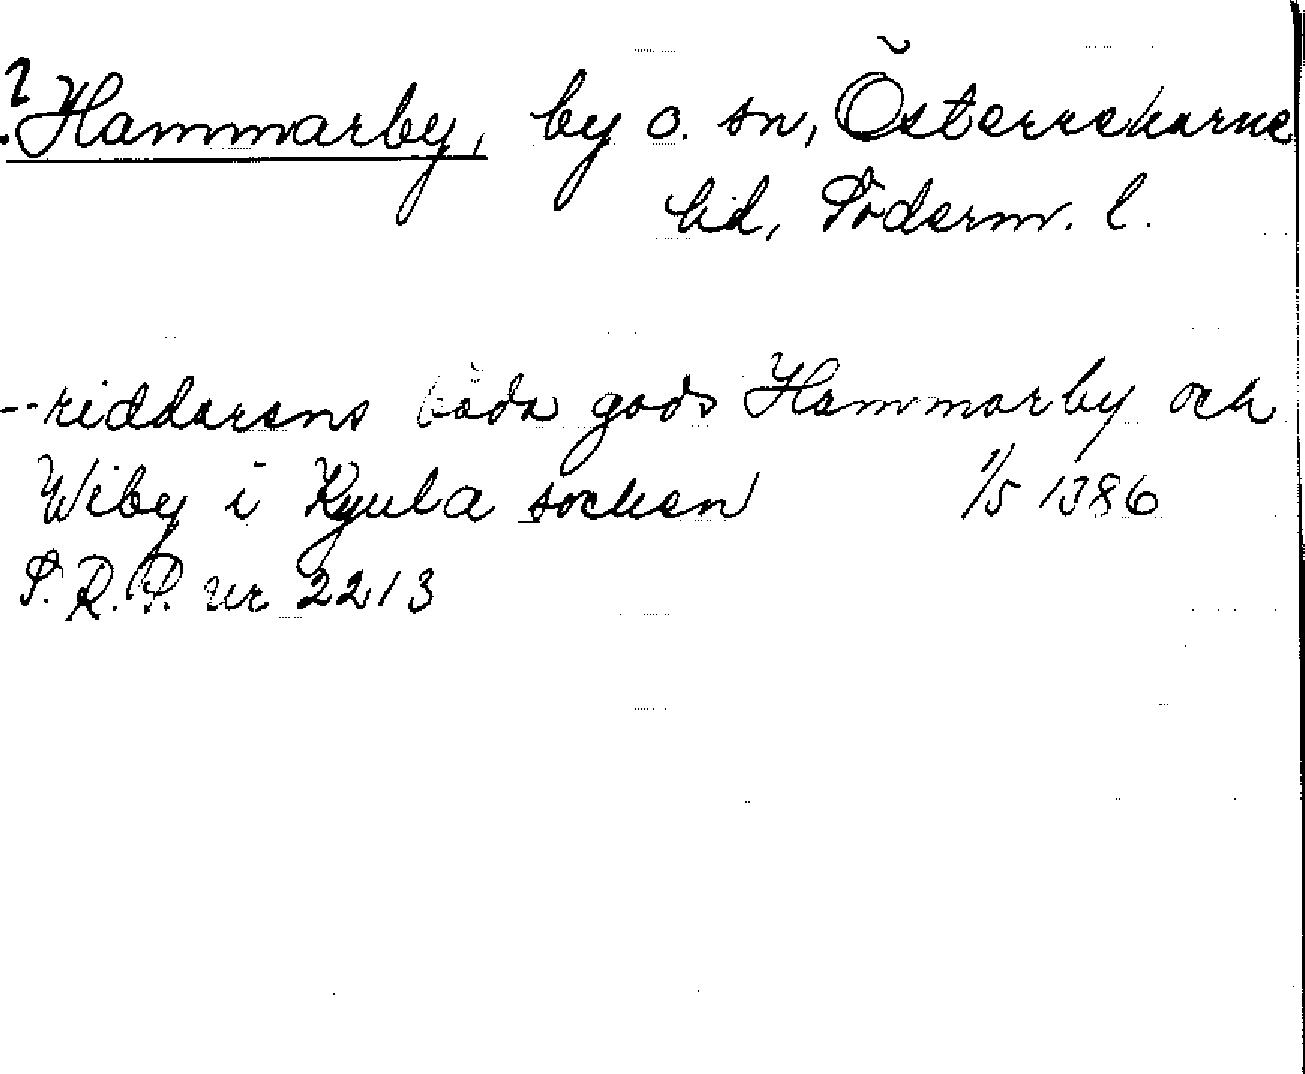 ? Hammarby, by o. sn, Österrekarne
hd, Söderm. l.
-- riddarens båda gods Hammarby och
Wiby i Kjula socken 1/5 1386
S. R. P. nr 2213